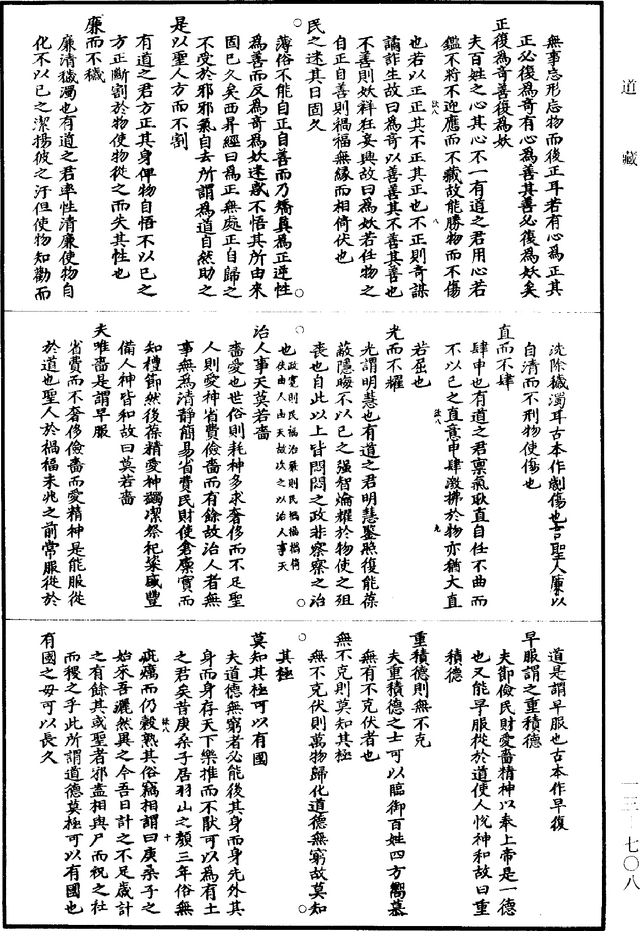 道藏
無事忘形忘物而後正耳若有心為正其
正必復為奇有心為善其善必復為妖矣
正復為奇善復為妖
夫百姓之心其心不一有道之君用心若
鑑不將不迎應而不藏故能勝物而不傷
也若以正正其不正其正也不正則奇謀
譎詐生故曰為奇以善善其不善其善也
不善則妖祥狂妄興故曰為妖若任物之
自正自善則禍福無緣而相倚伏也
民之迷其日固久
薄俗不能自正自善而乃矯真為正逆性
為善而反為奇為妖迷惑不悟其所由來
固已久矣西昇經曰為正無處正自歸之
不受於邪邪氣自去所謂為道自然助之
是以聖人方而不割
有道之君方正其身俾物自悟不以已之
方正斷割於物使物從之而失其性也
廉而不穢
廉清穢濁也有道之君率性清廉使物自
化不以已之潔揚彼之汙但使物知勸而
洗除穢濁耳古本作劌傷也言聖人廉以
自清而不刑物使傷也
直而不肆
肆申也有道之君稟氣耿直自任不曲而
不以已之直意申肆激拂於物亦猶大直
若屈也
光而不耀
光謂明慧也有道之君明慧鑒照復能葆
蔽隱晦不以已之强智爚耀於物使之沮
喪也自此以上皆悶悶之政非察察之治
也政寬則民福治嚴則民禍福禍倚
伏由人由天故次之以治人事天
治人事天莫若嗇
嗇愛也世俗則耗神多求奢侈而不足聖
人則愛神省費儉嗇而有餘故治人者無
事無為清靜簡易省費民財使倉廩實而
知禮節然後葆精愛神蠲潔祭祀粢盛豐
備人神皆和故曰莫若嗇
夫唯嗇是謂早服
省費而不奢侈儉嗇而愛精神是能服從
於道也聖人於禍福未兆之前常服從於
道是謂早服也古本作早復
早服謂之重積德
夫節儉民財愛嗇精神以奉上帝是一德
也又能早服從於道使人悅神和故曰重
積德
重積德則無不克
夫重積德之士可以臨御百姓四方嚮慕
無有不克伏者也
無不克則莫知其極
無不克伏則萬物歸化道德無窮故莫知
其極
莫知其極可以有國
夫道德無窮者必能後其身而身先外其
身而身存天下樂推而不猒可以為有土
之君矣昔庚桑子居羽山之顏三年俗無
疵癘而仍穀熟其俗竊相謂曰庚桑子之
始來吾灑然異之今吾日計之不足歲計
之有餘其或聖者邪盍相與尸而祝之社
而稷之乎此所謂道德莫極可以有國也
有國之母可以長久
一三—七〇八